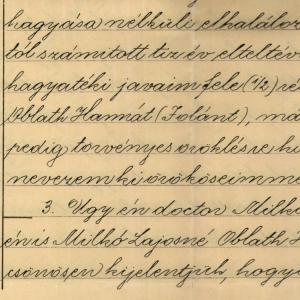 hagyása nélküli elhaláloz
tól számított tiz év elteltév
hagyatéki javaim fele (1/2) ré
Oblath Hannát (Jolánt), má
pedig törvényes öröklésre hi
nevezem ki örököseimme
3. Ugy én doctor Milkó
én is Milkó Lajosné Oblath H
csönösen kijelentjük, hogy a